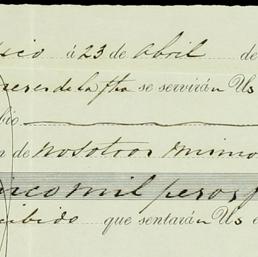 sico á 23 de abril de
meses de la fha se servirán Us
bio
n de nosotros mismo
inco mil pesos f
cibido que sentarán Us